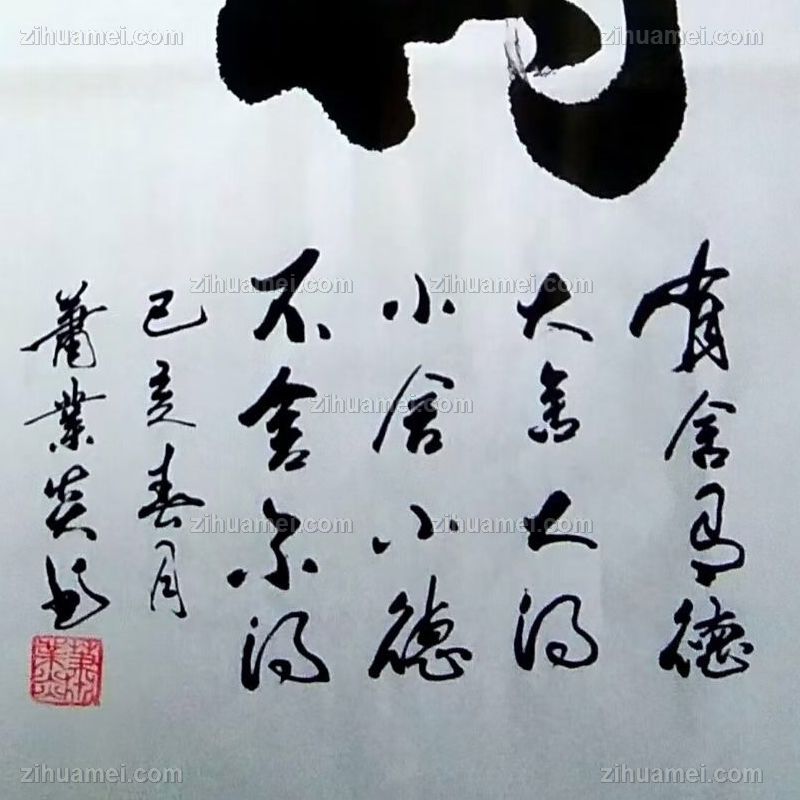 zihuamei.com zihuamei.com zihuamei.com
有舍德
大舍大得
小舍小德
不舍不得
己亥春月
蕭業炎书
zihuamei.com zihuamei.com
zihuamei.com
zihuamei.com zihuamei.com
zihuamei.com zihuamei.com zihuamei.com